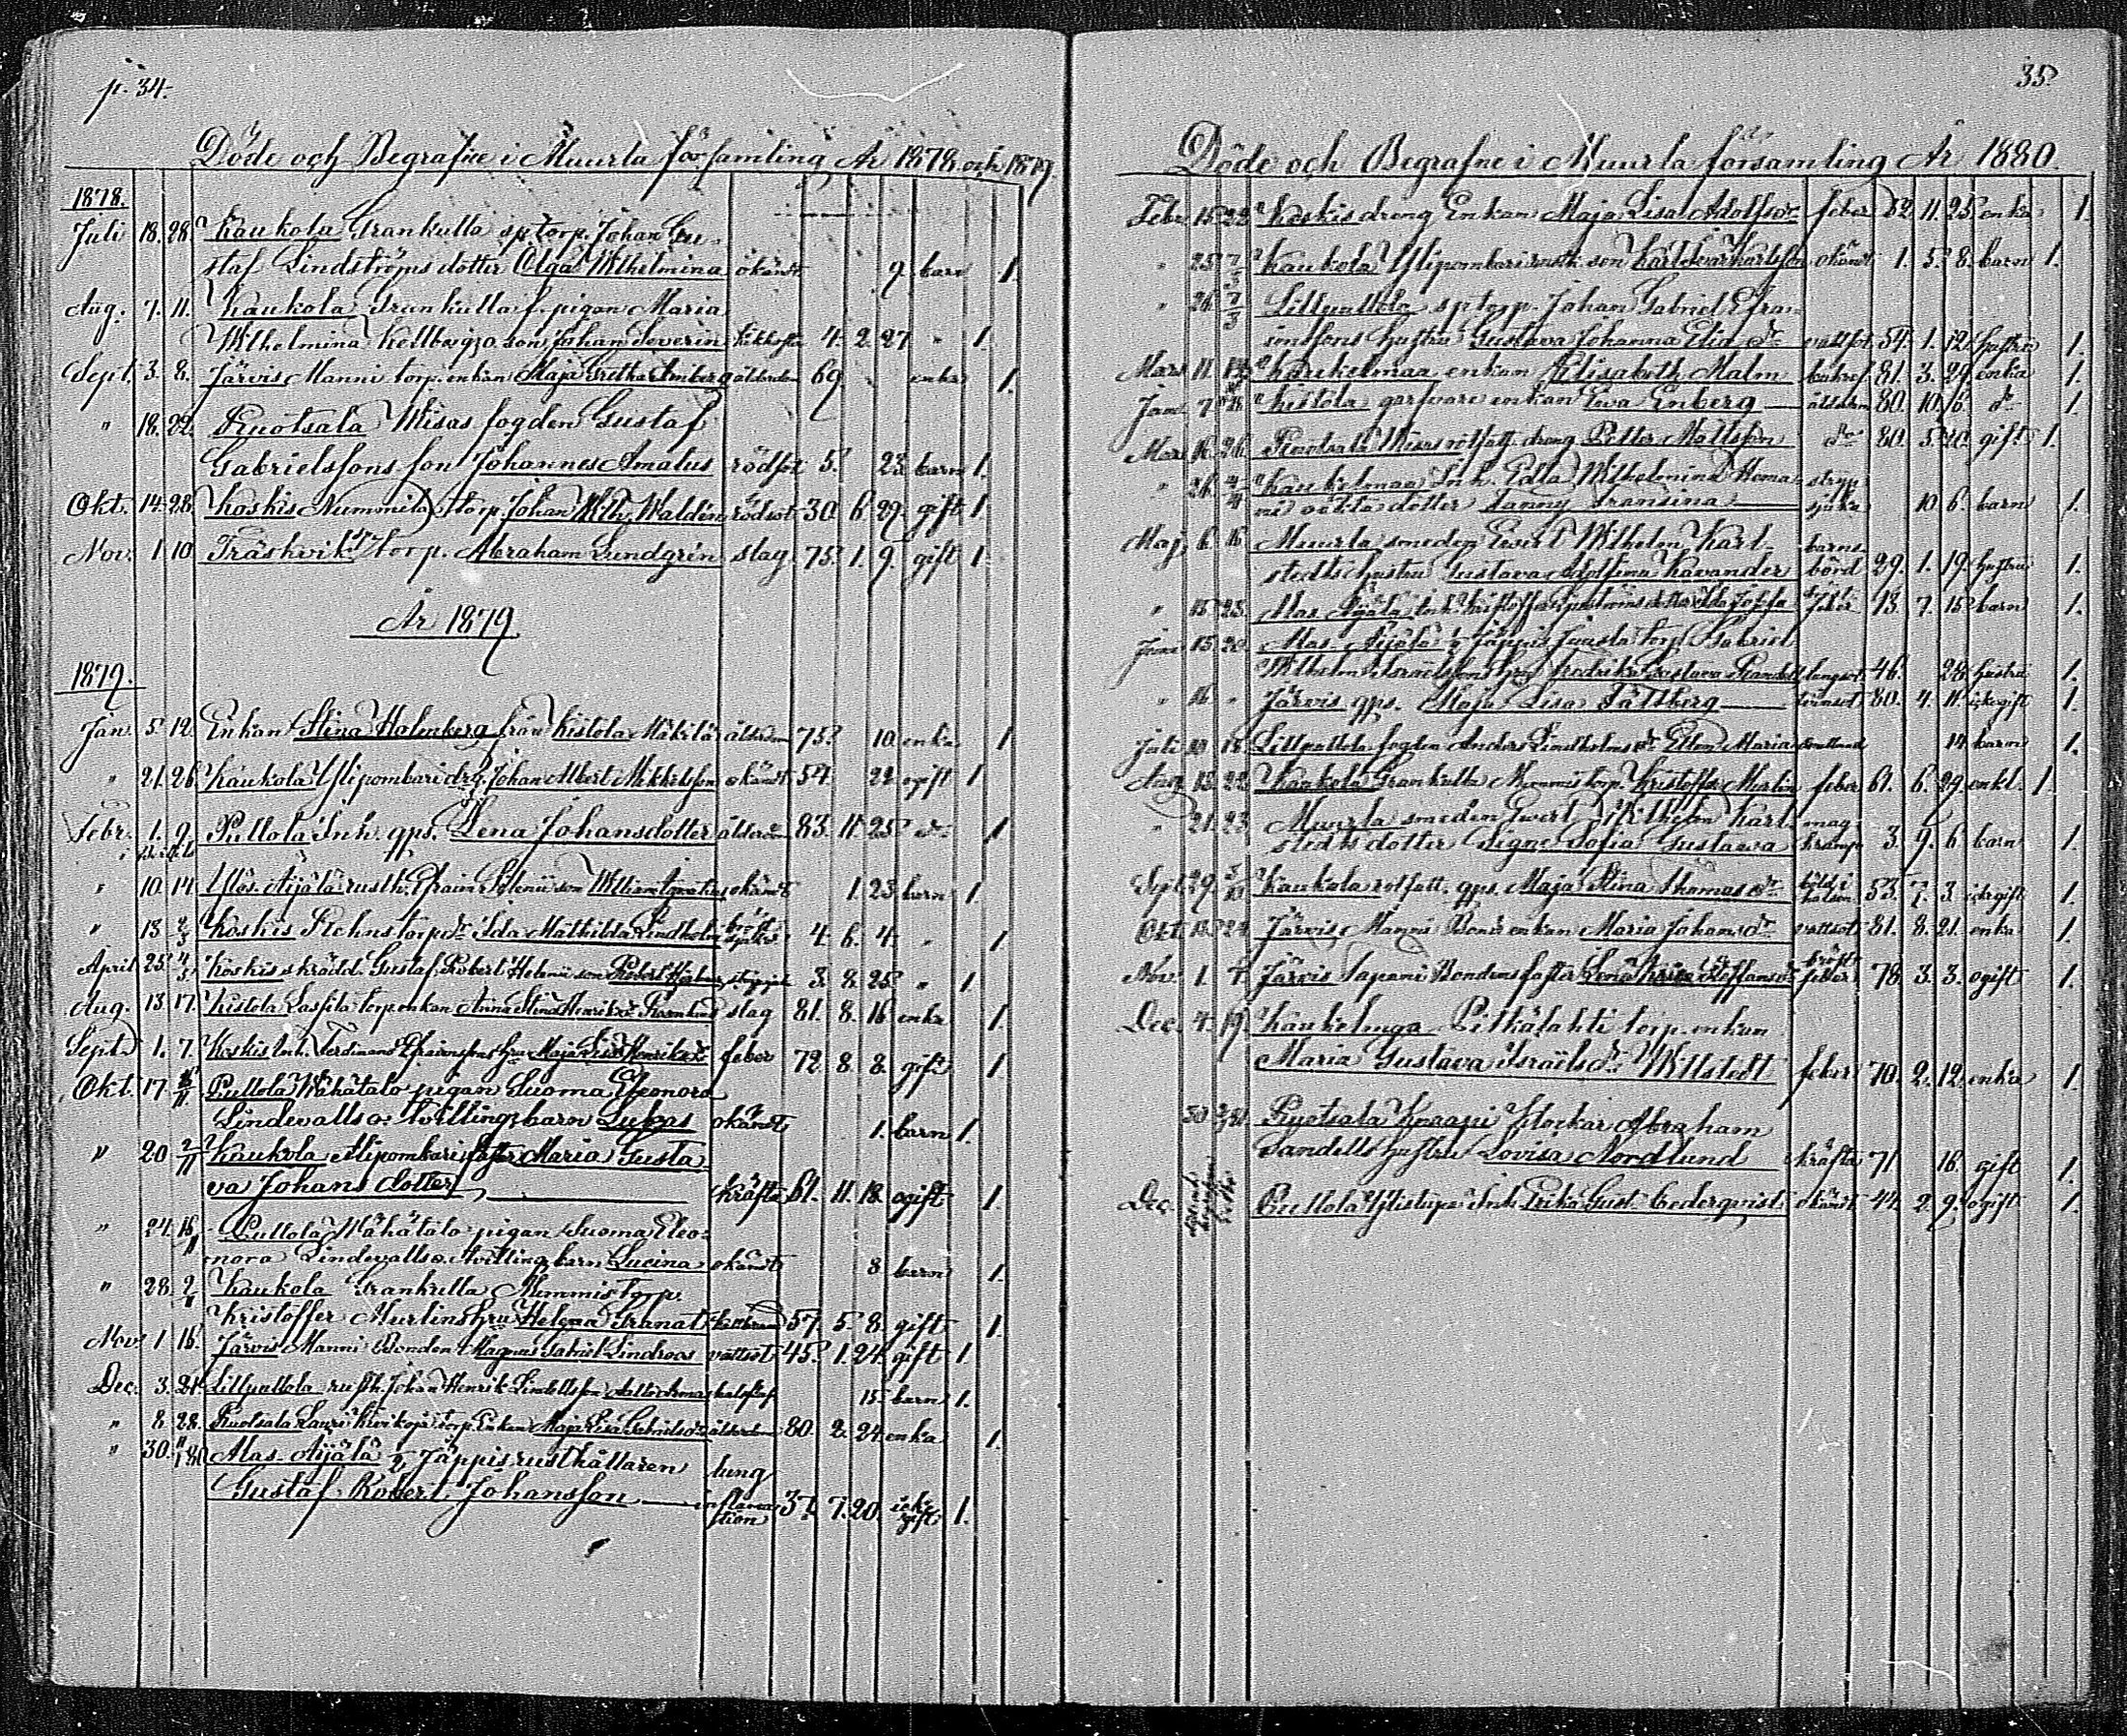 p. 34.
Döde och Begrafne i Muurla församling År 1878 och 1879.
1878.
Juli 18. 28. Kaukola Grankulla sp torp. Johan Gu-
staf Lindströms dotter Olga Wilhelmina okändt 9. barn 1.
Aug. 7. 11. Kaukola Grankulla f. pigan Maria
Wilhelmina Kellbergs o. son Johan Severin kikhosta 4. 2. 27 " 1.
Sept. 3. 8. Järvis Manni torp. enkan Maja Greta Amberg ålderdom 69. enka 1.
" 18. 22. Ruotsala Wisas fogden Gustaf
Gabrielssons son Johannes Amatus rödsot 5. 23. barn 1.
Okt. 14. 28. Koskis Nummila torp. Johan Wilh. Waldén rödsot 30. 6. 29. gift 1
Nov. 1. 10. Träskvik sp torp. Abraham Lundgrén slag. 75. 1. 9. gift 1.
År 1879
1879.
Jan. 5. 12. Enkan Stina Holmberg från Kistola Mäkilä ålderdom 75. 10. enka 1
" 21. 26. Kaukola Ylipombari drg. Johan Albert Mikkelsson okändt 54. 22. ogift 1
Febr. 1. 9. Pullola Inh. qps. Lena Johansdotter ålderdom 83. 11. 25. do 1
" 10. 14. Ylös. Äijälä rusth. Efraim Sylenii son William Ignatius okändt 1. 23. barn 1.
" 13 2/3 Koskis Rehns torp dr Ida Mathilda Lindholm bröstsjukd. 4. 6. 4. " 1
April 25. 4/5 Koskis skrädd. Gustaf Robert Helenii son Robert Hjalmar strypsjuk 3. 8. 25. " 1.
Aug. 13. 17. Kistola Lassila torp enkan Anna Stina Henriksdr Rosenlund slag 81. 8. 16. enka 1.
Sept. 1. 7. Koskis Inh. Ferdinand Efraimssons hru Maja Lisa Henriksdr feber 72. 8. 8. gift 1.
Okt. 17. Pullola Wähätalo pigan Suoma Eleonora
Lindevalls o: tvillingebarn Lukas okändt 1. barn 1.
" 20 2/11 Kaukola Alipombari faster Maria Gusta-
va Johans dotter kräfta 61. 11. 18. ogift 1.
" 24. 16/11 Pullola Wähätalo pigan Suoma Eleo-
nora Lindevalls o. tvilling barn Lucina okändt 8 barn 1.
" 28. 2/11 Kaukola Grankulla Mommis torp.
Kristoffer Murlins hru Helena Granat 57. 5. 8. gift 1.
Nov. 1. 16. Järvis Manni Bonden Magnus Gabriel Lindroos vattsot 45. 1. 24. gift 1.
Dec. 3. 21. Lillpullola rusth. Johan Henrik Lindells son 15. barn 1.
" 8. 28. Ruotsala Lauri Kivikoja torp. Enkan Maja Lisa Gabrielsdr ålderdom 80. 2. 24 enka 1.
" 30. Alas. Äijälä ½ Jäppis rusthållaren lung
Gustaf Robert Johansson inflamation 37. 7. 20. icke gift 1.
35.
Döde och Begrafne i Muurla församling År 1880.
Febr. 15. 22. Koskis dreng Enkan Maja Lisa Adolfsdr feber 52. 11. 25. enka 1.
" 25. 7/3 Kaukola Ylipombari rusth. son Karl Ivar Karlsson okändt 1. 5. 8. barn 1.
" 26. 7/3 Lillpullola sp torp. Johan Gabriel Efra-
imssons hustru Gustava Johanna Elia dr vattsot 54. 1. 12. hustru 1.
Mars 11. Kaukelmaa enkan Elisabeth Malm 81. 3. 29. enka 1.
Jan. 7. 18. Kistola garfvare enkan Eva Enberg ålderdom 80. 10. 6. do 1.
Mars 16. 26. Ruotsala Wisas rotfatt. dreng Petter Mattsson do 80. 5. 20. gift 1.
" 26. 4/4 Kaukelmaa Inh. Edla Wilhelmina Homa- stryp
ni oäkta dotter Fanny Fransina sjuka 10. 6. barn 1.
Maj 6. 16. Muurla smeden Evert Wilhelm Karl- barns
stedts hustru Gustava Adolfina Kavander börd 29. 1. 19. hustru 1.
" 15. 23. Alas. Äijälä Inh. Kristoffer dotter Ida Josefa feber 13. 7. 15. barn 1.
Juni 15. 20. Alas. Äijälä ½ Jäppis Juusla torp. Gabriel
Wilhelm Israelssons hru Fredrika Gustava Randell lungsot 46. 28. hustru 1.
" 16. " Järvis qps. Maja Lisa Fältberg 80. 4. 11. icke gift 1.
Juli 10. 18. Lillpullola fogden Anders Lindholms dr Ellen Maria 14 barn 1.
Aug. 13. 22. Kaukola Grankulla Mommis torp. Kristoffer Murlin feber 61. 6. 29. enkl. 1.
" 21. 23. Muurla smeden Evert Wilhelm Karl- mag
stedts dotter Signe Sofia Gustava kramp 3. 9. 6. barn 1.
Sept. 29. 3/10 Kaukola rotfatt. qps. Maja Stina Thomas dr böld i halsen 53. 7. 3. icke gift 1.
Okt. 12. 24. Järvis Manni Bonde enkan Maria Johans dr vattsot 81. 8. 21. enka 1.
Nov. 1. 7. Järvis Sapami Bondens faster Lena Kaisa Stoffers dr bröst feber 78. 3. 3. ogift 1.
Dec. 4. 19. Kaukelmaa Pitkälahti torp. enkan
Maria Gustava Israëls dr Willstedt feber 70. 2. 12. enka 1.
30. Ruotsala Knaapi klockar Abraham
Sandells hustru Lovisa Nordlund kräfta 71. 16. gift 1.
Dec. Pullola Ylistupa Inh. Erika Gust. Cederqvist okändt 44. 2. 9. ogift 1.